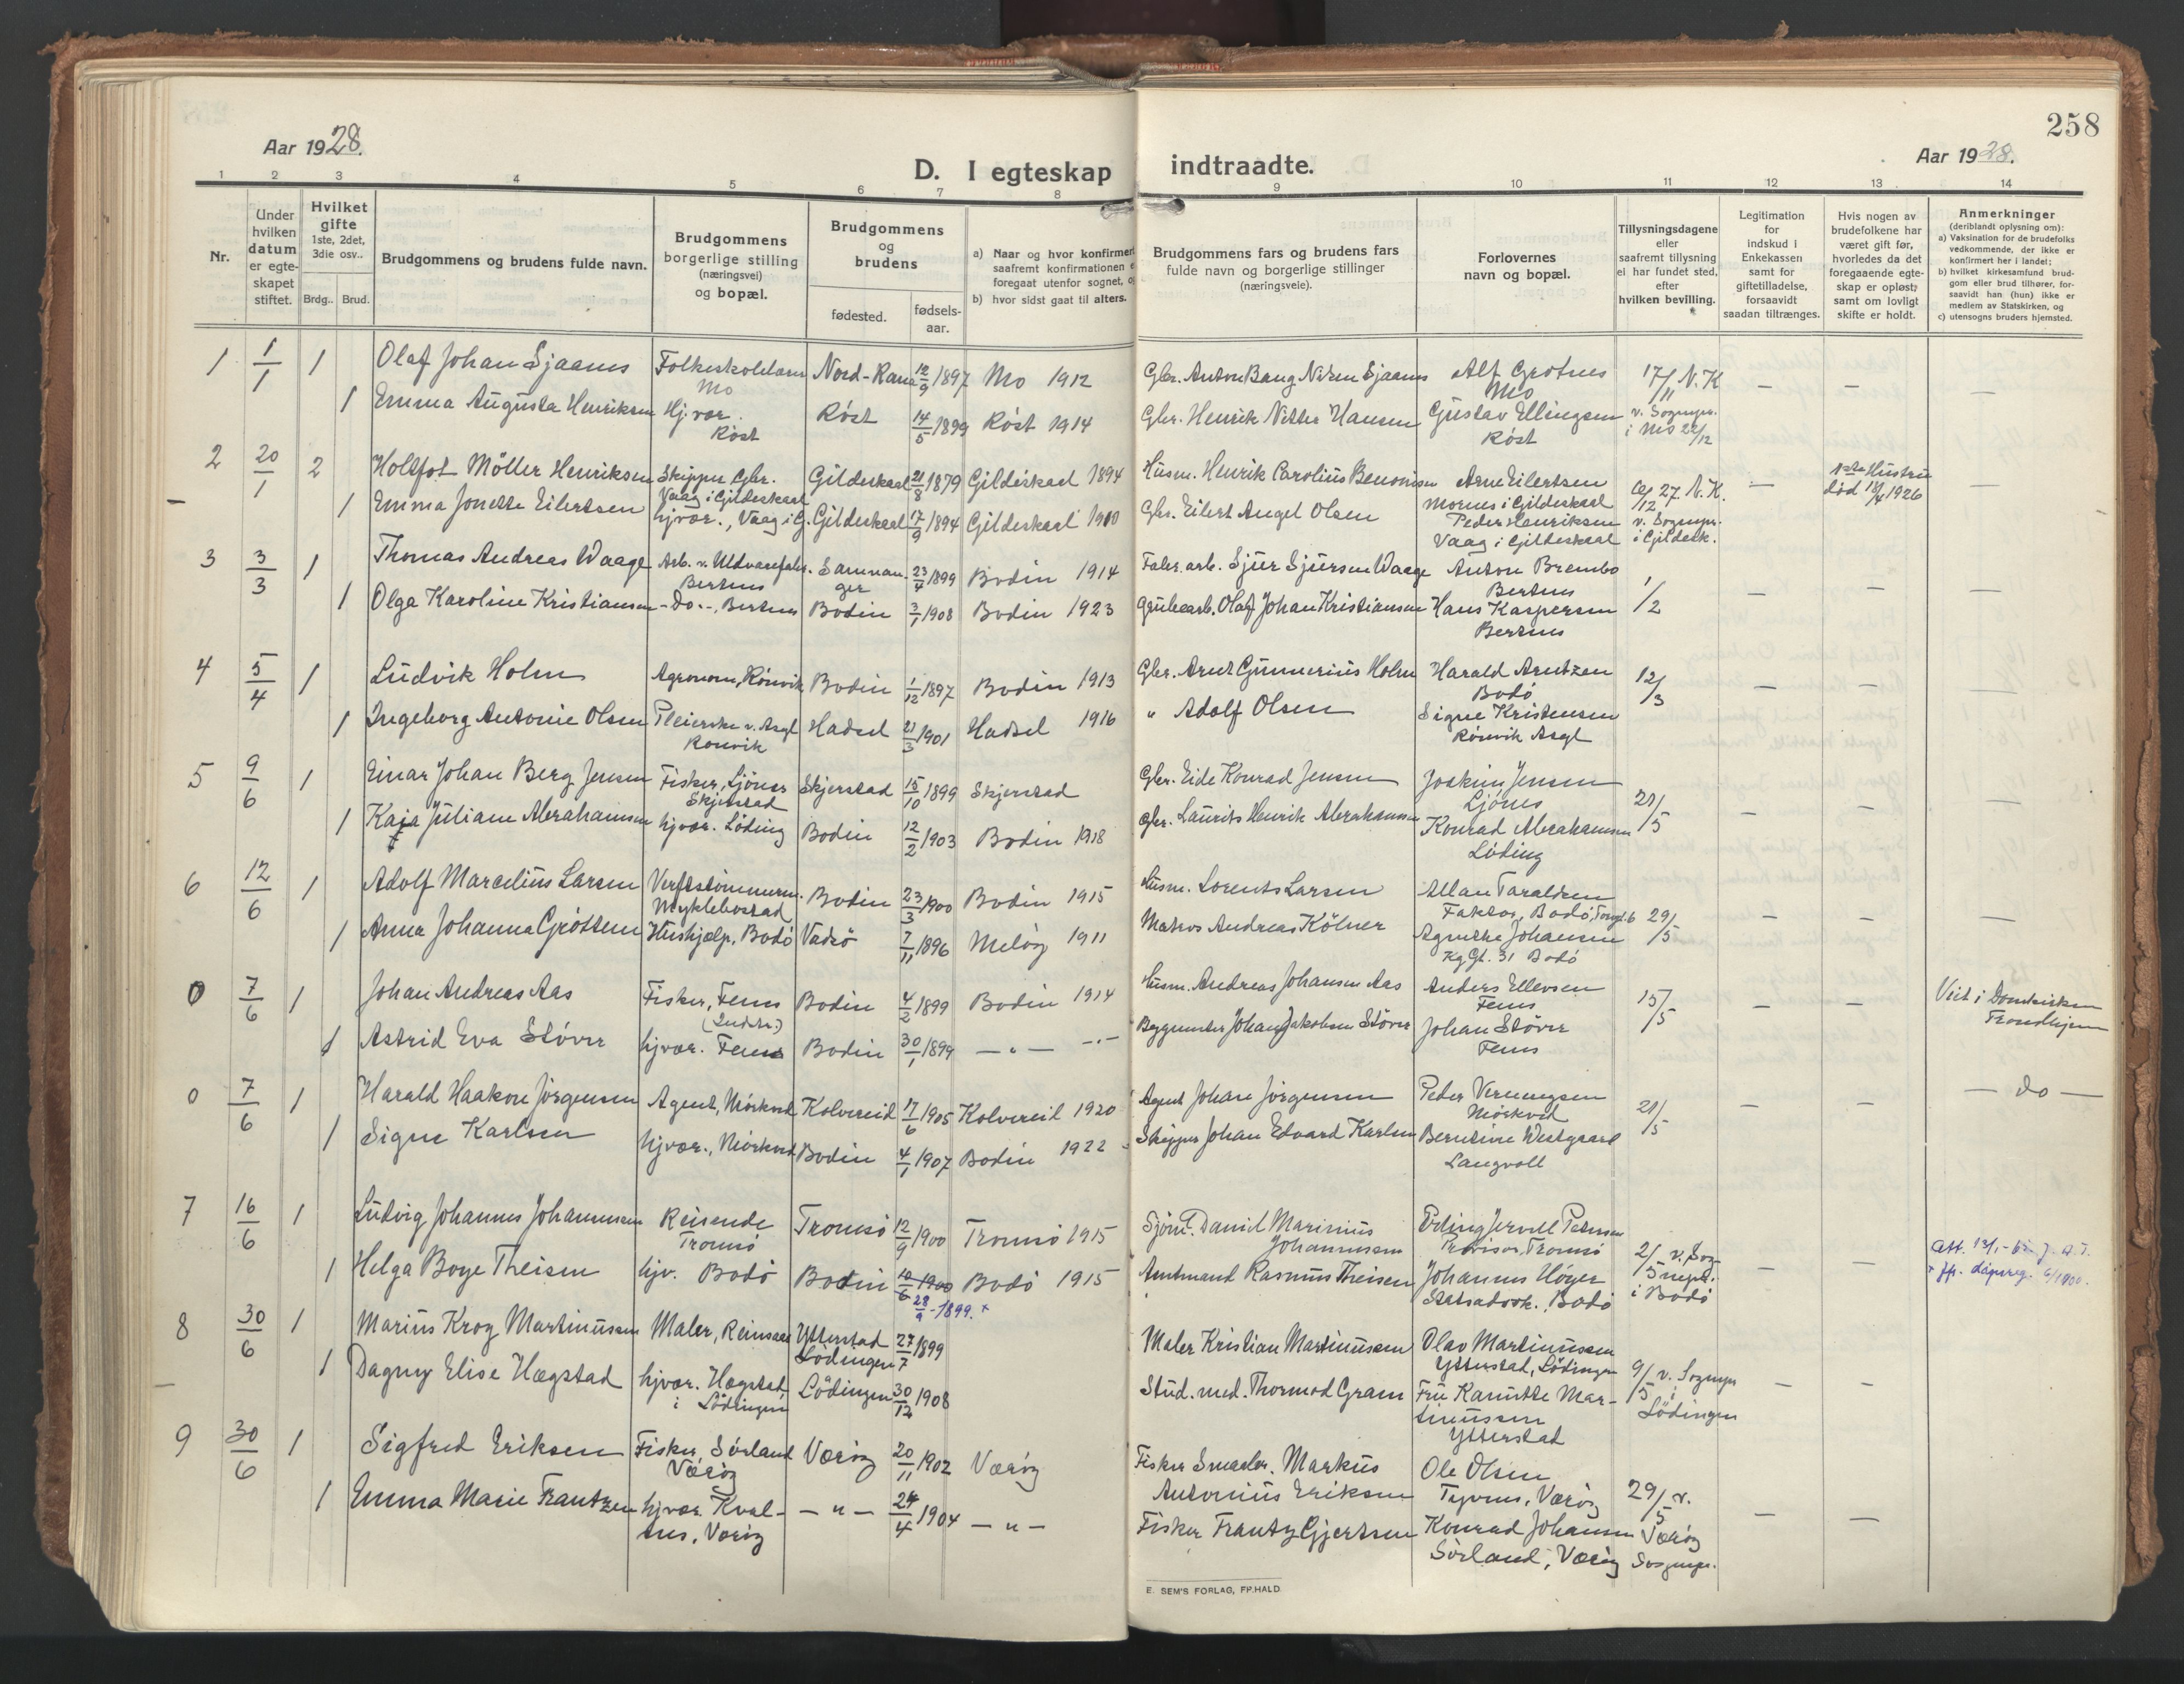 258
Aar 1928.
Aar 1928.
D. I egteskap indtraadte.
1 2 3 4 5 6 7 8 9 10 11 12 13 14
Nr.
Under hvilken datum er egteskapet stiftet.
Hvilket gifte 1ste, 2det, 3die osv..
Brdg.. Brud.
Brudgommens og brudens fulde navn.
Brudgommens borgerlige stilling (næringsvei) og bopæl.
Brudgommens og brudens
fødested.
fødselsaar.
a) Naar og hvor konfirmert
saafremt konfirmationen
foregaat utenfor sognet,
b) hvor sidst gaat til alters.
Brudgommens fars og brudens fars
fulde navn og borgerlige stillinger
(næringsveie).
Forlovernes
navn og bopæl.
Tillysningsdagene
eller
saafremt tillysning
ei har fundet sted,
efter
hvilken bevilling.
Legitimation
for
indskud i
Enkekassen
samt for
giftetilladelse,
forsaavidt
saadan tiltrænges.
Hvis nogen av
brudefolkene har
været gift før,
hvorledes da det
foregaaende egte-
skap er opløst;
samt om lovligt
skifte er holdt.
Anmerkninger
(deriblandt oplysning om):
a) Vaksination for de brudefolks
vedkommende, der ikke er
konfirmert her i landet;
b) hvilket kirkesamfund brud-
gom eller brud tilhører, for-
saavidt han (hun) ikke er
medlem av Statskirken, og
c) utensogns bruders hjemsted.
1 1/1 1 Olaf Johan Sjaanes Folkeskolelærer Mo Nord-Rana 12/9 1897 Mo 1912 Gbr. Anton Bang Nilsen Sjaanes Alf Grotnes Mo 17/11 N.K — — —
1 Emma Augusta Henriksen Hj.vær. Røst Røst 14/5 1899 Røst 1914 Gbr. Henrik Nitter Hansen Gustav Ellingsen Røst v. Sognepr. i Mo 22/12
2 20/1 2 Møller Henriksen Skipper Gbr. Vaag i Gildeskaal Gildeskaal 21/8 1879 Gildeskaal 1894 Husm. Henrik Carolius Benonisen Arne Eilertsen Mornes i Gildeskaal 27 N.K. — 1ste Hustru død 18/4 1926 —
— 1 Emma Jonette Eilertsen hjvær., Vaag i G. Gildeskaal 17/9 1894 Gildeskaal 1910 Gbr. Eilert Angel Olsen Peder Henriksen Vaag i Gildeskaal v. Sognepr. i Gildesk.
3 3/3 1 Thomas Andreas Waage Arb. v. Uldvarefabr. Bertnes Samnanger 23/4 1899 Bodin 1914 Fabr. arb. Sjur Sjursen Waage Anton Brembo Bertnes 1/2 — — —
1 Olga Karoline Kristiansen -Do-, Bertnes Bodin 3/1 1908 Bodin 1923 Grubearb. Olaf Johan Kristiansen Hans Kaspersen Bertnes
4 5/4 1 Ludvik Holm Agronom, Rønvik Bodin 1/12 1897 Bodin 1913 Gbr. Arnt Gunnerius Holm Harald Arntzen Bodø 12/3 — — —
1 Ingeborg Antonie Olsen Pleierske v. Asyl Rønvik Hadsel 21/3 1901 Hadsel 1916 " Adolf Olsen Signe Kristensen Rønvik Asyl
5 9/6 1 Einar Johan Berg Jensen Fisker, Ljønes Skjerstad Skjerstad 15/10 1899 Skjerstad Gbr. Eide Konrad Jensen Joakim Jensen Ljønes 21/5 — — —
1 Kaja Juliane Abrahamsen hjvær. Løding Bodin 12/2 1903 Bodin 1918 Gbr. Laurits Henrik Abrahamsen Konrad Abrahamsen Løding
6 12/6 1 Adolf Marcelius Larsen Verftstømmerm. Myklebostad Bodin 23/3 1900 Bodin 1915 Husm. Lorents Larsen Allan Taraldsen Faktor, Bodø, 29/5 — — —
1 Anna Johanna Grøttem Hushjælp, Bodø Vadsø 7/11 1896 Meløy 1911 Matros Andreas Kölner Agnethe Johansen Kg Gt. 31 Bodø
0 7/6 1 Johan Andreas Aas Fisker, Fenes Bodin 4/2 1899 Bodin 1914 Husm. Andreas Johansen Aas Anders Ellevsen Fenes 15/5 — — Viet i Domkirken Trondhjem
1 Astrid Eva Støver hjvær. Fenes Bodin 30/1 1899 — " — Byggmester Johan Jakobsen Støver Johan Støver Fenes
0 7/6 1 Harald Haakon Jørgensen Agent, Mørkved Kolvereid 17/6 1905 Kolvereid 1920 Agent Johan Jørgensen Peder Vernengsen Mørkved 21/5 — — — do —
1 Signe Karlsen hjvær., Mørkved Bodin 4/1 1907 Bodin 1922 Skipper Johan Edvard Karlsen Berntine Westgaard Langvoll
7 16/6 1 Ludvig Johannes Johannessen Reisende Tromsø Tromsø 12/9 1900 Tromsø 1915 Sjøm. Daniel Marinius Johannessen Erling Jervell Petersen Provisor, Tromsø 2/5 v. Sognepr. i Bodø — —
1 Helga Boye Theisen hjv. Bodø Bodin 10/6 1900 28/9-1899.+ Bodø 1915 Amtmand Rasmus Theisen Johannes Høyer Statsadvok. Bodø
8 30/6 1 Marius Krog Martinussen Maler, Reinsaas Ytterstad Lödingen 27/7 1899 Maler Kristian Martinussen Olav Martinussen Ytterstad, Lödingen 9/5 v. Sognepr i Lödingen — —
— 1 Dagny Elise Hægstad hjvær. Hægstad, i Lödingen Lödingen 30/12 1908 Stud. med. Thormod Gram Fru Kanutte Martinussen Ytterstad
9 30/6 1 Sigfred Eriksen Fisker, Sørland Værøy Værøy 20/11 1902 Værøy Fisker Smaabr. Markus Antonius Eriksen Ole Olsen Tyvnes, Værøy 29/5 v. Værøy Sognepr. — —
1 Emma Marie Frantzen hjvær. Kvalnes, Værøy — " — 24/4 1904 — " — Fisker Frantz Gjertsen Konrad Johansen Sørland, Værøy
E. SEM'S FORLAG, FR.HALD